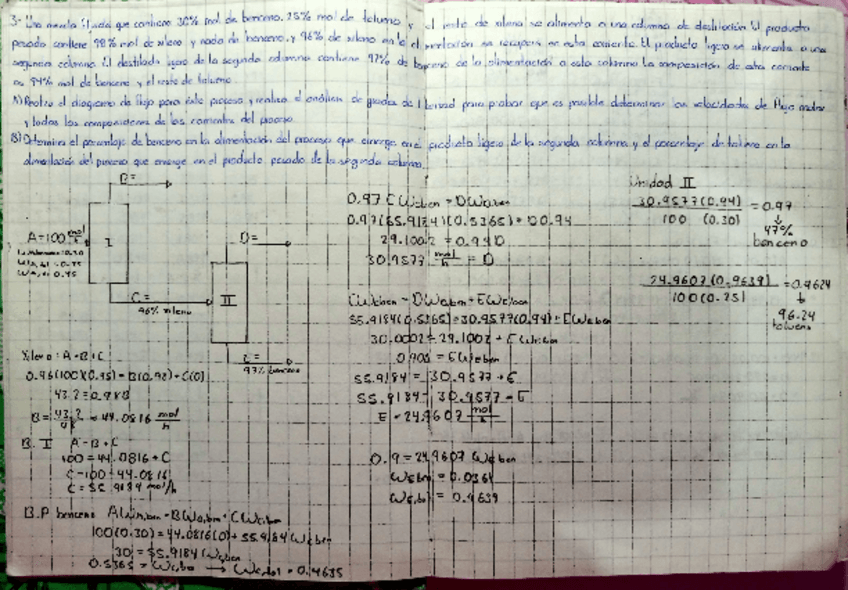 3- Una mezcla líquida que contiene 30% mol de benceno, 25% mol de tolueno y el resto de xileno se alimenta a una columna de destilación. El producto
pesado contiene 98% mol de xileno y nada de benceno, y 96% de xileno en la alimentación se recupera en esta corriente. El producto ligero se alimenta a una
segunda columna. El destilado ligero de la segunda columna contiene 97% de benceno de la alimentación a esta columna la composición de esta corriente
es 94% mol de benceno y el resto de tolueno.
A) Realice el diagrama de flujo para este proceso y realice el análisis de grados de libertad para probar que es posible determinar las velocidades de flujo molar
y todas las composiciones de las corrientes del proceso
B) Determine el porcentaje de benceno en la alimentación del proceso que emerge en el producto ligero de la segunda columna y el porcentaje de tolueno en la
alimentación del proceso que emerge en el producto pesado de la segunda columna.
B=
A=100 mol/h
I
C=
96% xileno
D=
II
E=
97% benceno
Xileno: A=B+C
0.96(100)(0.45)=B(0.98)+C(0)
43.2=0.98B
B= 43.2 = 44.0816 mol/h
B. I A=B+C
100=44.0816+C
C=100-44.0816
C=55.9184 mol/h
B.P benceno AWA,ben=BWB,ben+CWC,ben
100(0.30)=44.0816(0)+55.9184 WC,ben
30=55.9184 WC,ben
0.5365=WC,ben → WC,tol=0.4635
0.97 CWC,ben=DWD,ben
0.97(55.9184)(0.5365)=D0.94
29.1002=0.94D
30.9577 mol/h = D
CWC,ben=DWD,ben+EWE,ben
55.9184(0.5365)=30.9577(0.94)+EWE,ben
30.0002=29.1002+EWE,ben
0.900=EWE,ben
55.9184=30.9577+E
55.9184-30.9577=E
E=24.9607 mol/h
0.9=24.9607 WE,ben
WE,ben=0.0361
WE,tol=0.9639
Unidad II
30.9577(0.94) / 100 (0.30) =0.97
↓
97%
benceno
24.9607(0.9639) / 100(0.25) =0.9624
↓
96.24
tolueno